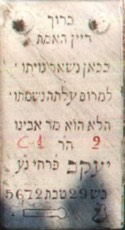 ברוך
דיין האמת
כאן נשאר גויתו
למרום עלתה נשמתו
הלא הוא מר אבינו
C-1 הר 2
יעקב פרחי נע
בש 29 טבת 5672